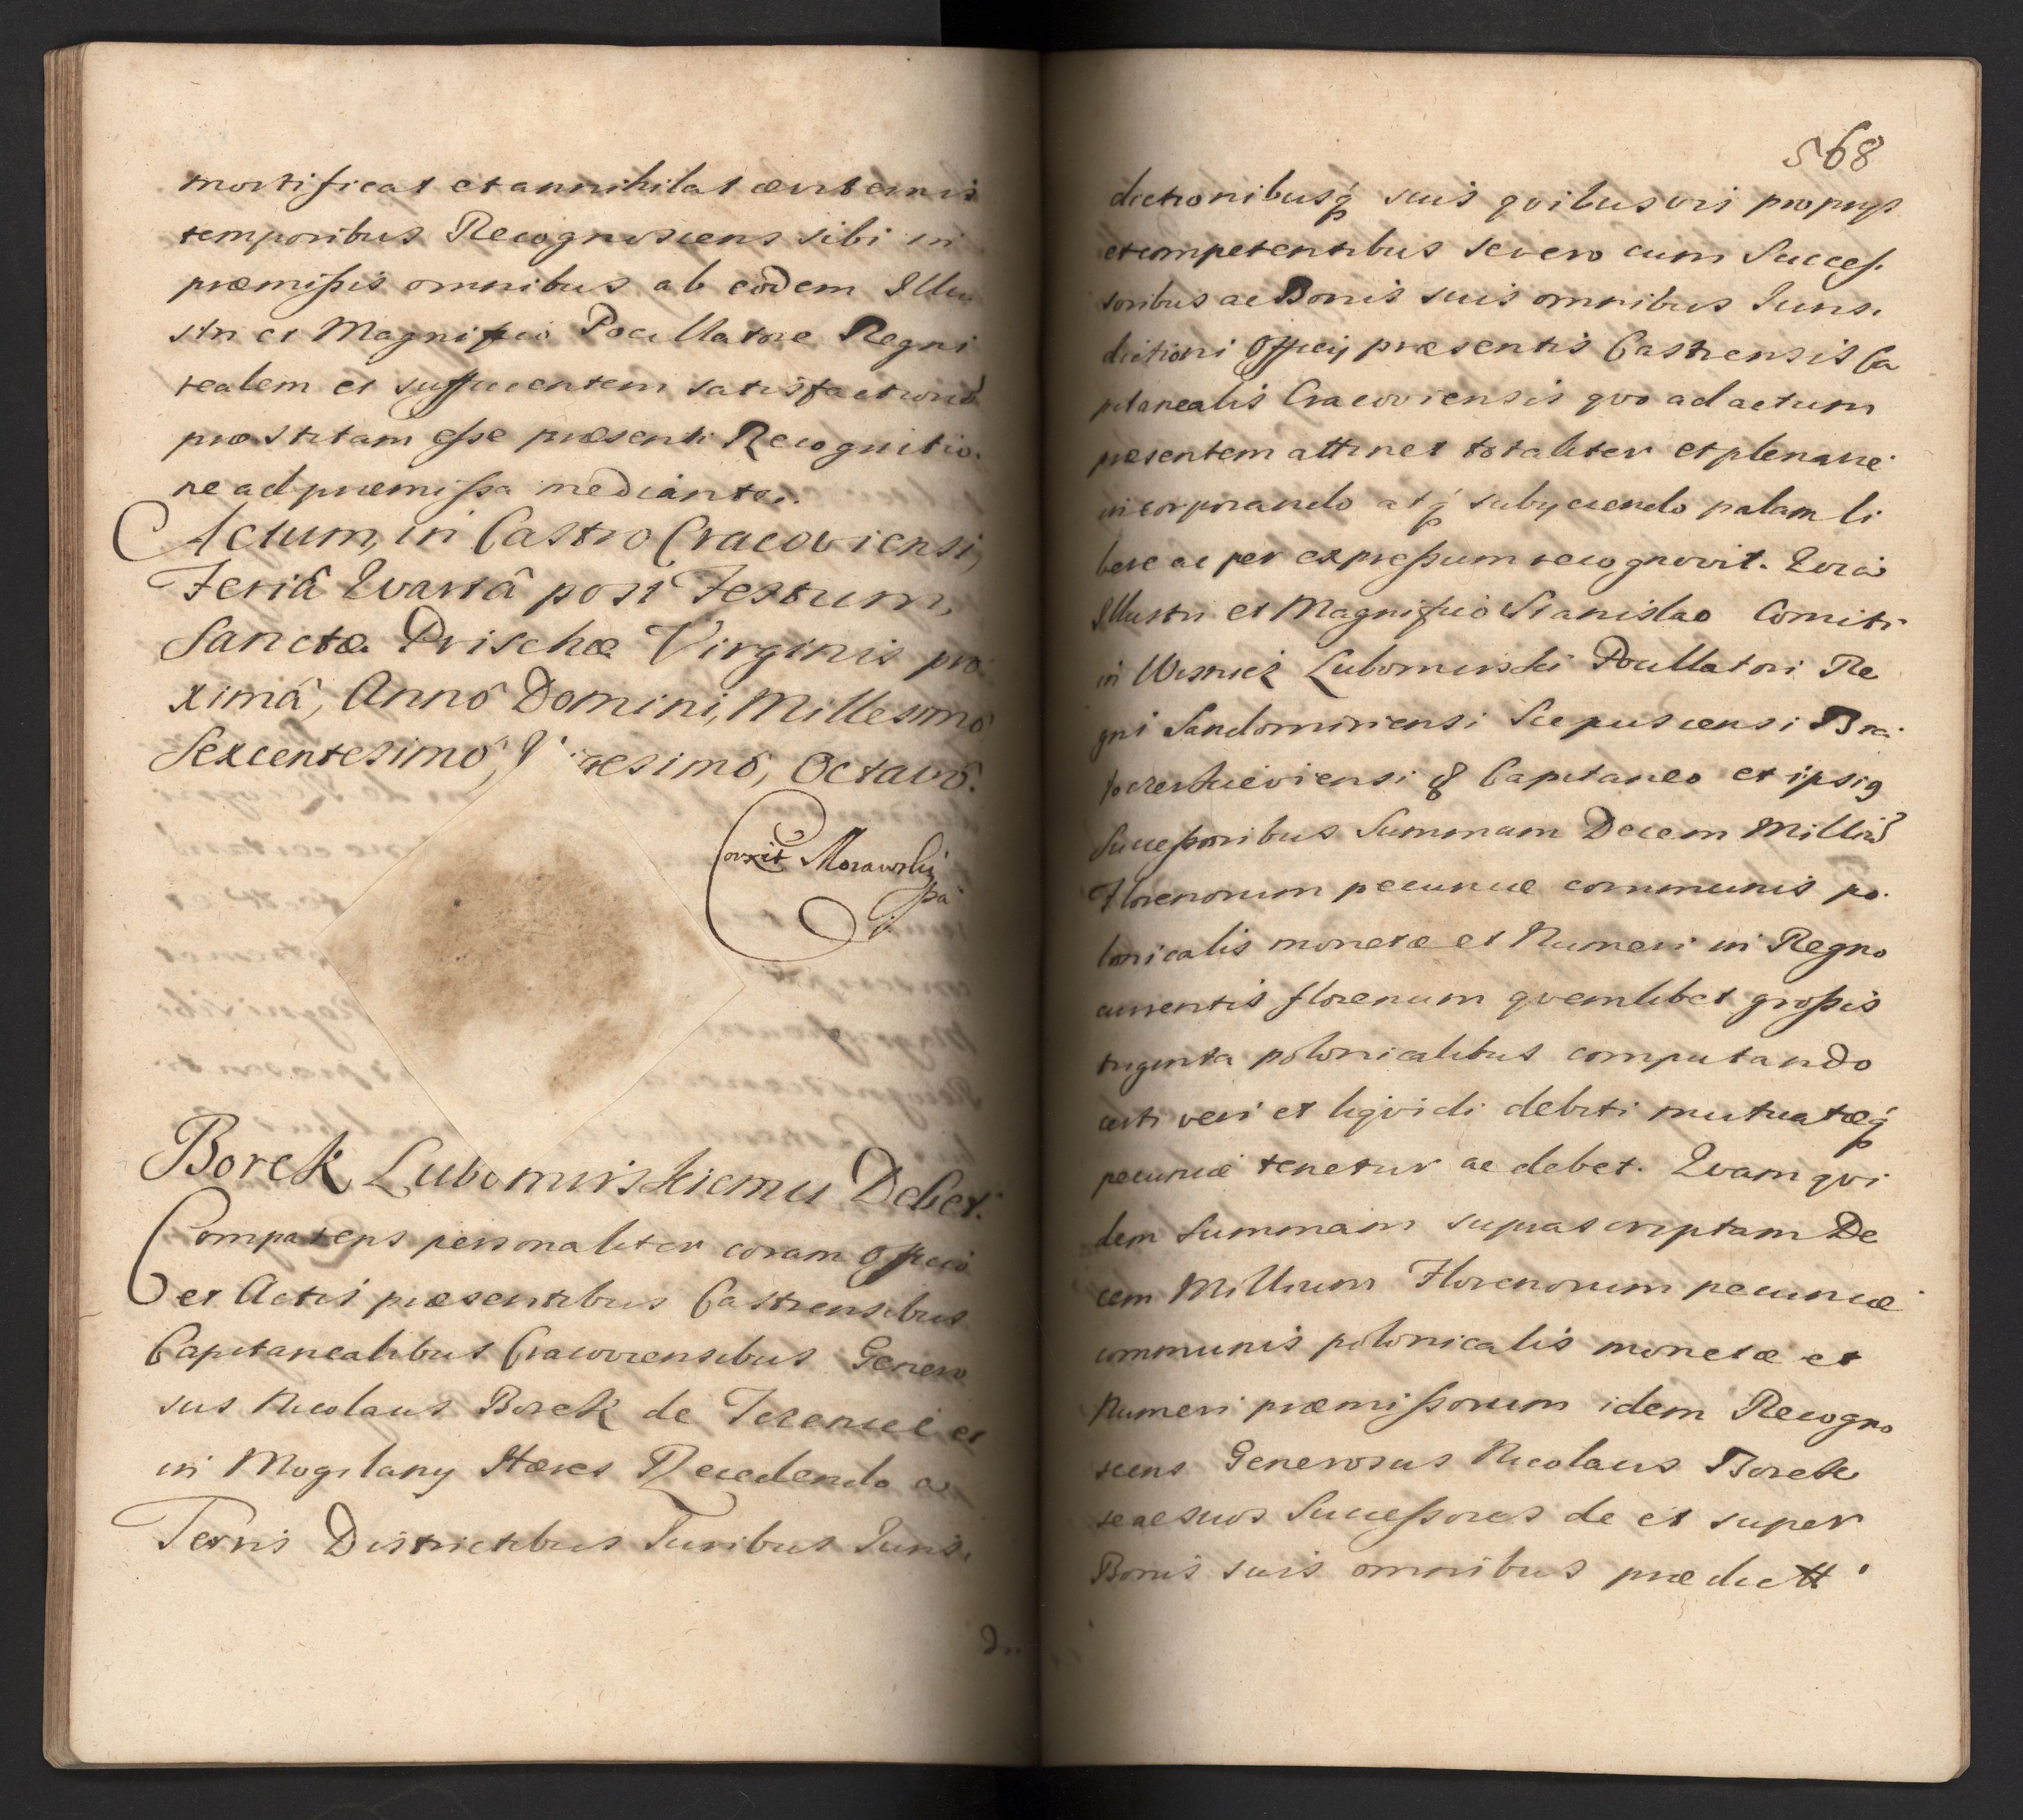 mortificat et annihilat æviternis
temporibus Recognoscens sibi in
præmißis omnibus ab eodem Illu
stri et Magnifico Pocillatore Regni
realem et sufficientem satisfactionẽ
præstitam eße præsenti Recognitio.
ne ad præmißa mediante.
Actum, in Castro Cracoviensi,
Feriâ Qvartâ post Festum,
Sanctæ Prischæ Virginis pro:
ximâ, Annô Domini, Millesimô
Sexcentesimô, esimô, Octavô.
Correxit Morawski
Borek Lubomirskiemu Debet.
Comparens personaliter coram Officio
et Actis præsentibus Castrensibus
Capitanealibus Cracoviensibus Genero
sus Nicolaus Borek de et
in Mogilany Hæres Recedendo a
Terris Districtibus Iuribus Iuris.
568
dictionibusq́ suis qvibusvis proprijs
et competentibus se vero cum Succeß.
soribus ac Bonis suis omnibus Iuris.
dictioni Officij præsentis Castrensis Ca
pitanealis Cracoviensis qvo ad actum
præsentem attinet totaliter et plenarie
incorporando atq́ subyciendo palam li
bere ac per expreßum recognovit. Qvia
Illustri et Magnifico Stanislao Comiti
in Wisnicz Lubomirski Pocillatori Re
gni Sandomiriensi Scepusiensi
Capitaneo et ipsi9
Succeßoribus Summam Decem Milliũ
Florenorum pecuniæ communis po.
lonicalis monetæ et Numeri in Regno
currentis florenum qvemlibet großis
triginta polonicalibus computando
certi veri et liqvidi debiti mutuatæq́
pecuniæ tenetur ac debet. Qvam qvi
dem Summam suprascriptam De
cem Millium Florenorum pecuniæ
communis polonicalis monetæ et
Numeri præmißorum idem Recogno
scens Generosus Nicolaus Borek
se ac suos Succeßores de et super
Bonis suis omnibus prædictt